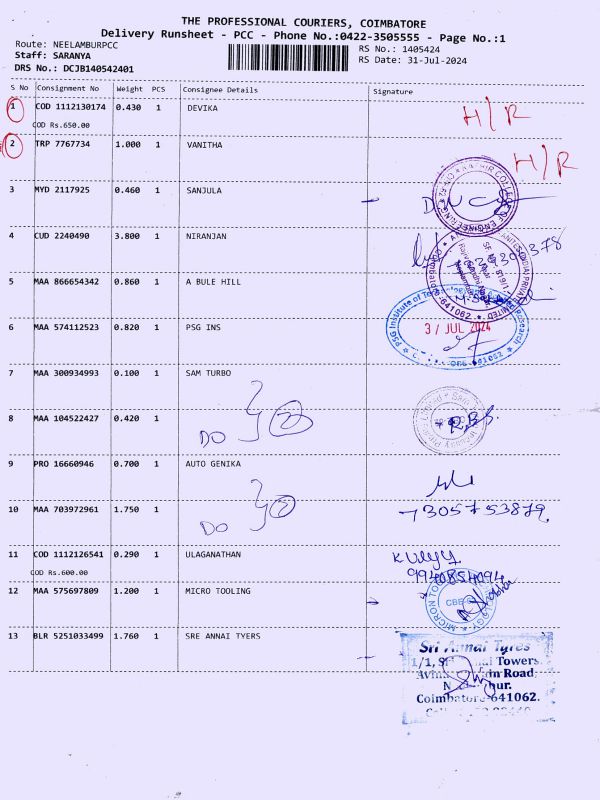 THE PROFESSIONAL COURIERS, COIMBATORE
Delivery Runsheet - PCC - Phone No.:0422-3505555 - Page No.:1
Route: NEELAMBURPCC
Staff: SARANYA
DRS No.: DCJB140542401
RS No.: 1405424
RS Date: 31-Jul-2024
S No Consignment No Weight PCS Consignee Details Signature
1 COD 1112130174 0.430 1 DEVIKA H/R
COD Rs.650.00
2 TRP 7767734 1.000 1 VANITHA H/R
3 MYD 2117925 0.460 1 SANJULA
4 CUD 2240490 3.800 1 NIRANJAN
5 MAA 866654342 0.860 1 A BULE HILL
641062
6 MAA 574112523 0.820 1 PSG INS
PSG Institute of
Research
31 JUL 2024
7 MAA 300934993 0.100 1 SAM TURBO
8 MAA 104522427 0.420 1 DO
9 PRO 16660946 0.700 1 AUTO GENIKA
10 MAA 703972961 1.750 1 DO 7305753879
11 COD 1112126541 0.290 1 ULAGANATHAN
COD Rs.600.00 9940854094
12 MAA 575697809 1.200 1 MICRO TOOLING
13 BLR 5251033499 1.760 1 SRE ANNAI TYERS
Sri Annai Tyres
Towers
Road,
Coimbatore-641062.